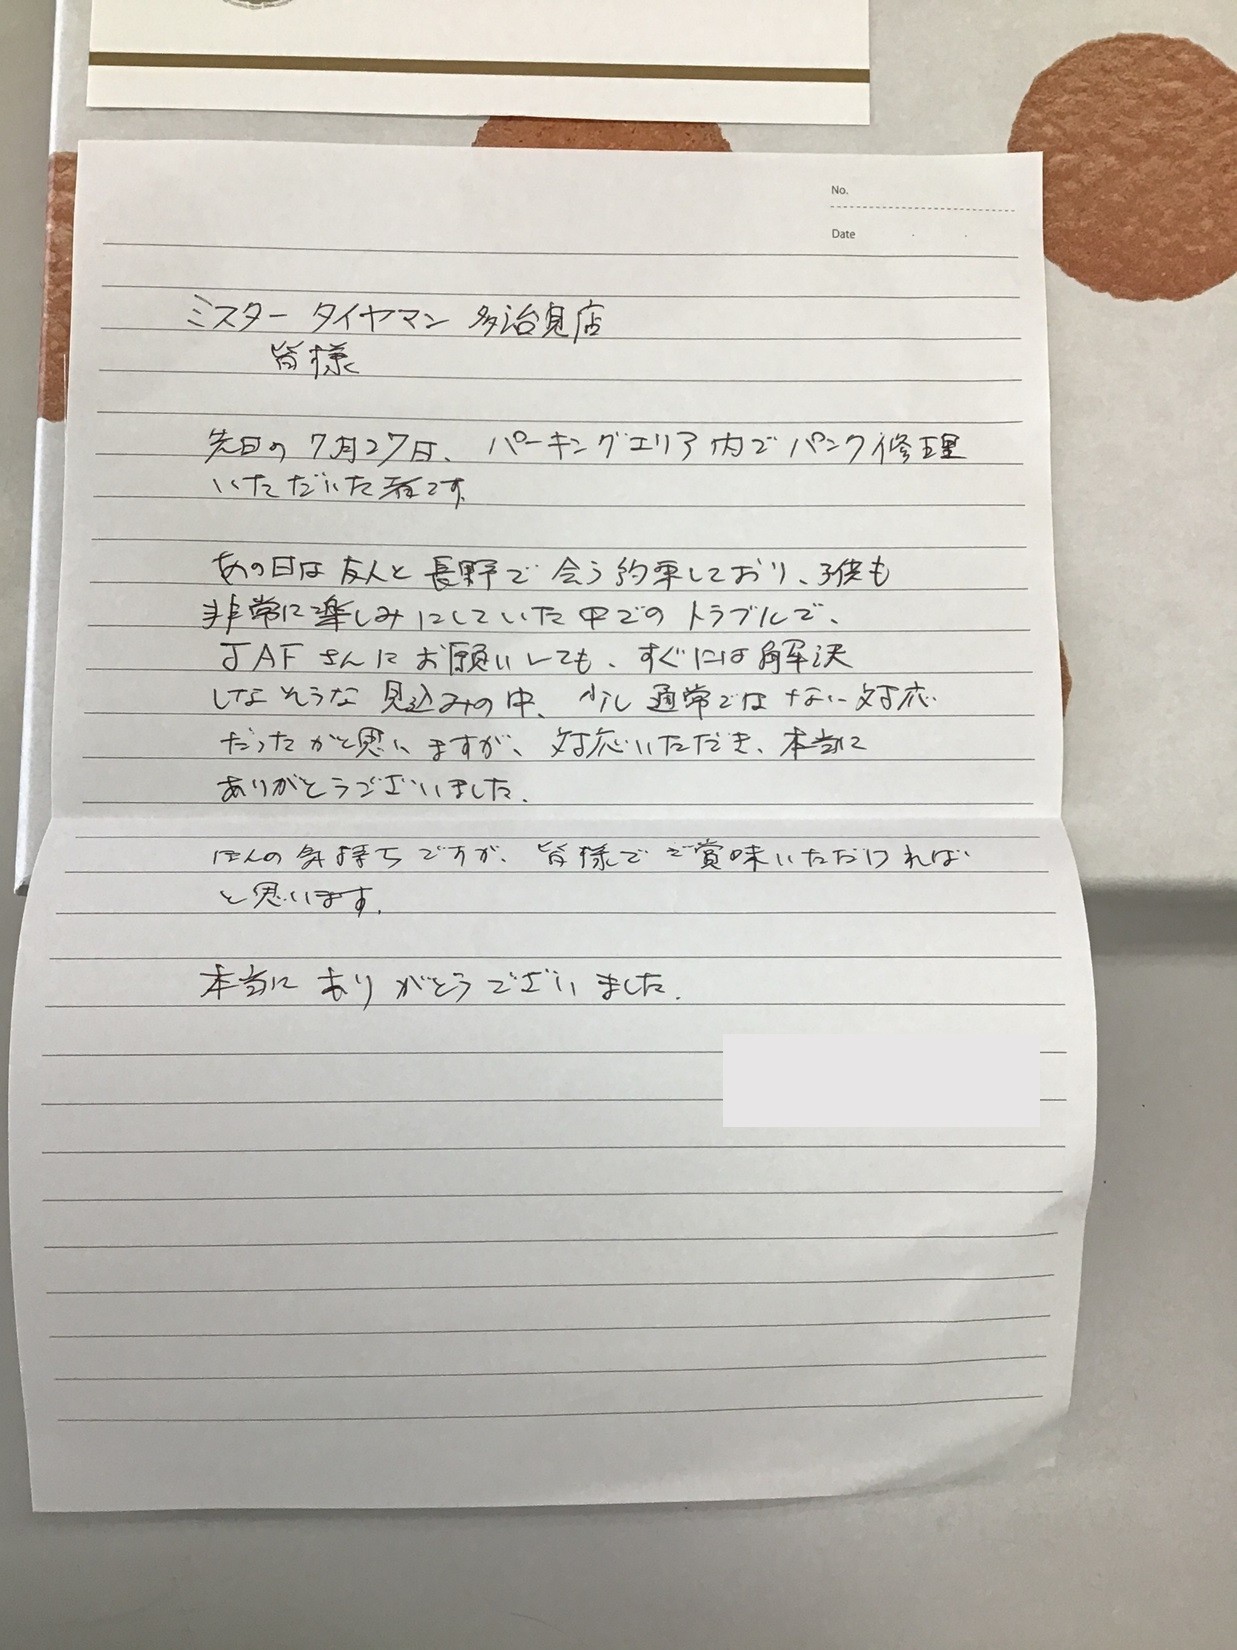 No.
Date
ミスター タイヤマン 多治見店
皆様
先日の 7月27日、パーキングエリア内でパンク修理
いただいた者です。
あの日は友人と長野で会う約束しており、子供も
非常に楽しみにしていた中でのトラブルで、
JAFさんにお願いしても、すぐには解決
しなそうな見込みの中、少し通常ではない対応
だったかと思いますが、対応いただき、本当に
ありがとうございました。
ほんの気持ちですが、皆様でご賞味いただければ
と思います。
本当に ありがとうございました。